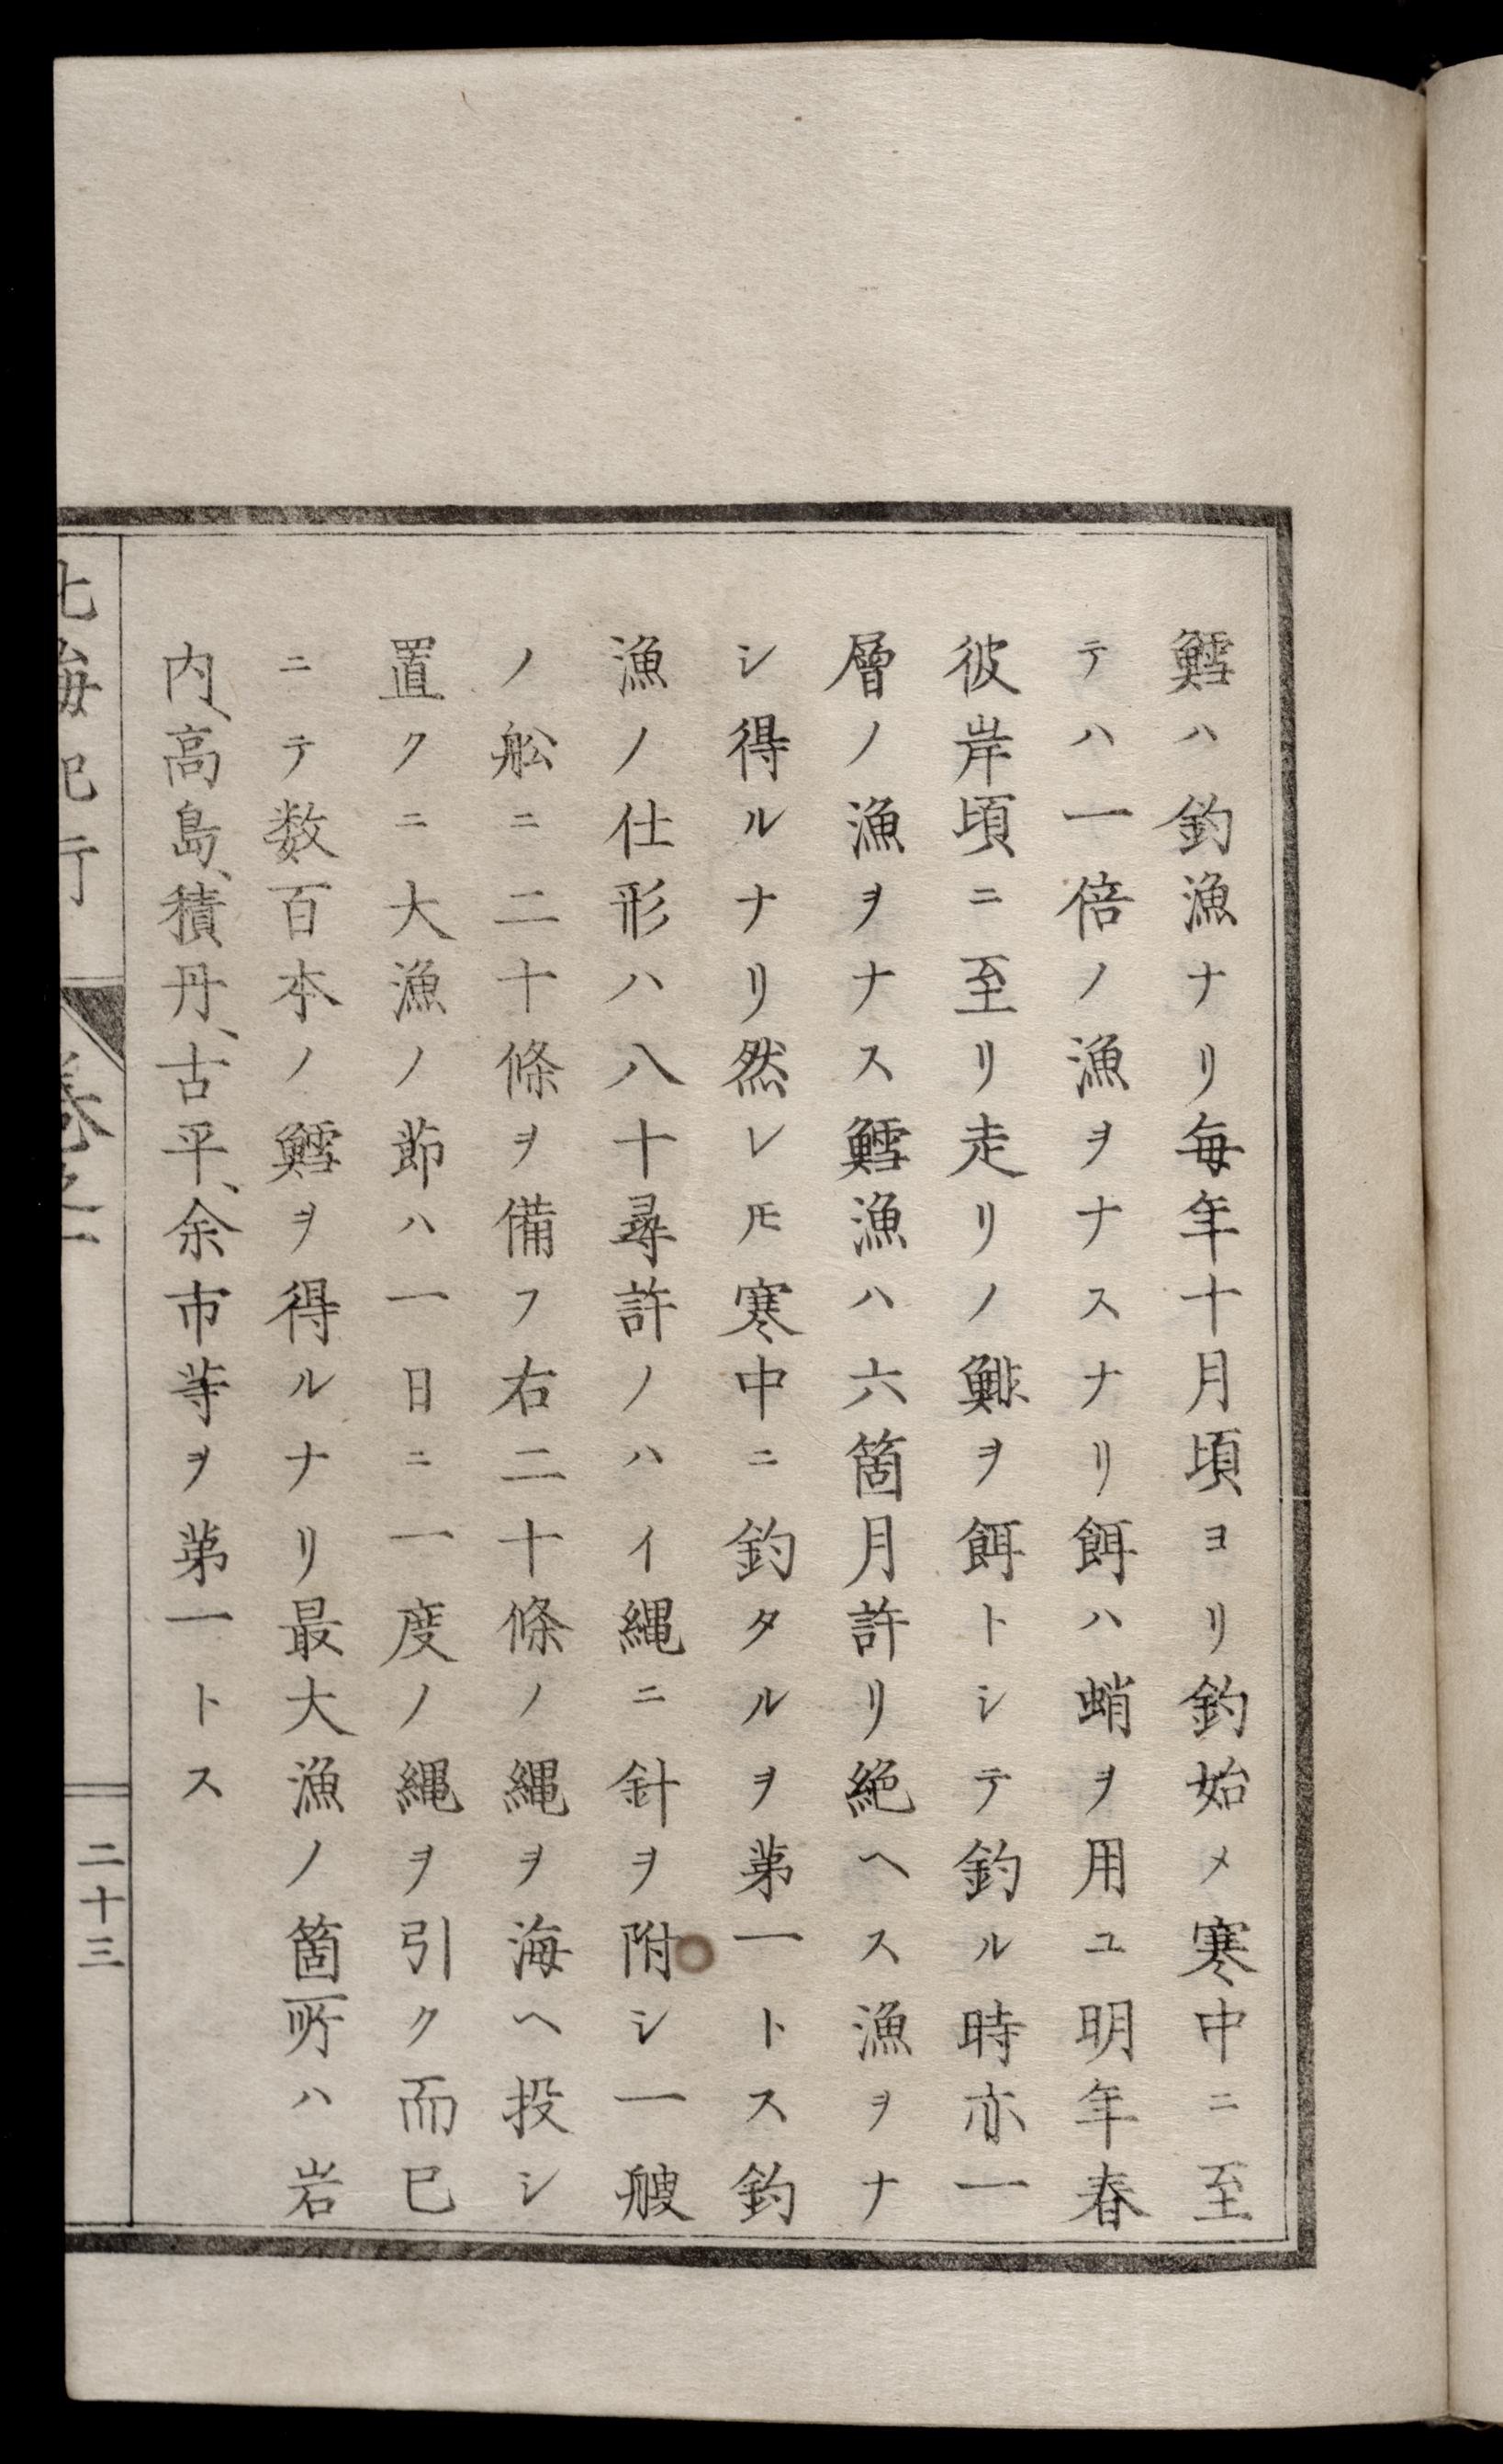 鱈ハ釣漁ナリ毎年十月頃ヨリ釣始メ寒中ニ至
テハ一倍ノ漁ヲナスナリ餌ハ蛸ヲ用ユ明年春
彼岸頃ニ至リ走リノ鯡ヲ餌トシテ釣ル時亦一
層ノ漁ヲナス鱈漁ハ六箇月許リ絶ヘス漁ヲナ
シ得ルナリ然レ𪜈寒中ニ釣タルヲ第一トス釣
漁ノ仕形ハ八十尋許ノハイ縄ニ針ヲ附シ一艘
ノ舩ニ二十條ヲ備フ右二十條ノ縄ヲ海ヘ投シ
置クニ大漁ノ節ハ一日ニ一度ノ縄ヲ引ク而已
ニテ数百本ノ鱈ヲ得ルナリ最大漁ノ箇所ハ岩
内、高島、積丹、古平、余市等ヲ第一トス
北海紀行 巻之二 二十三